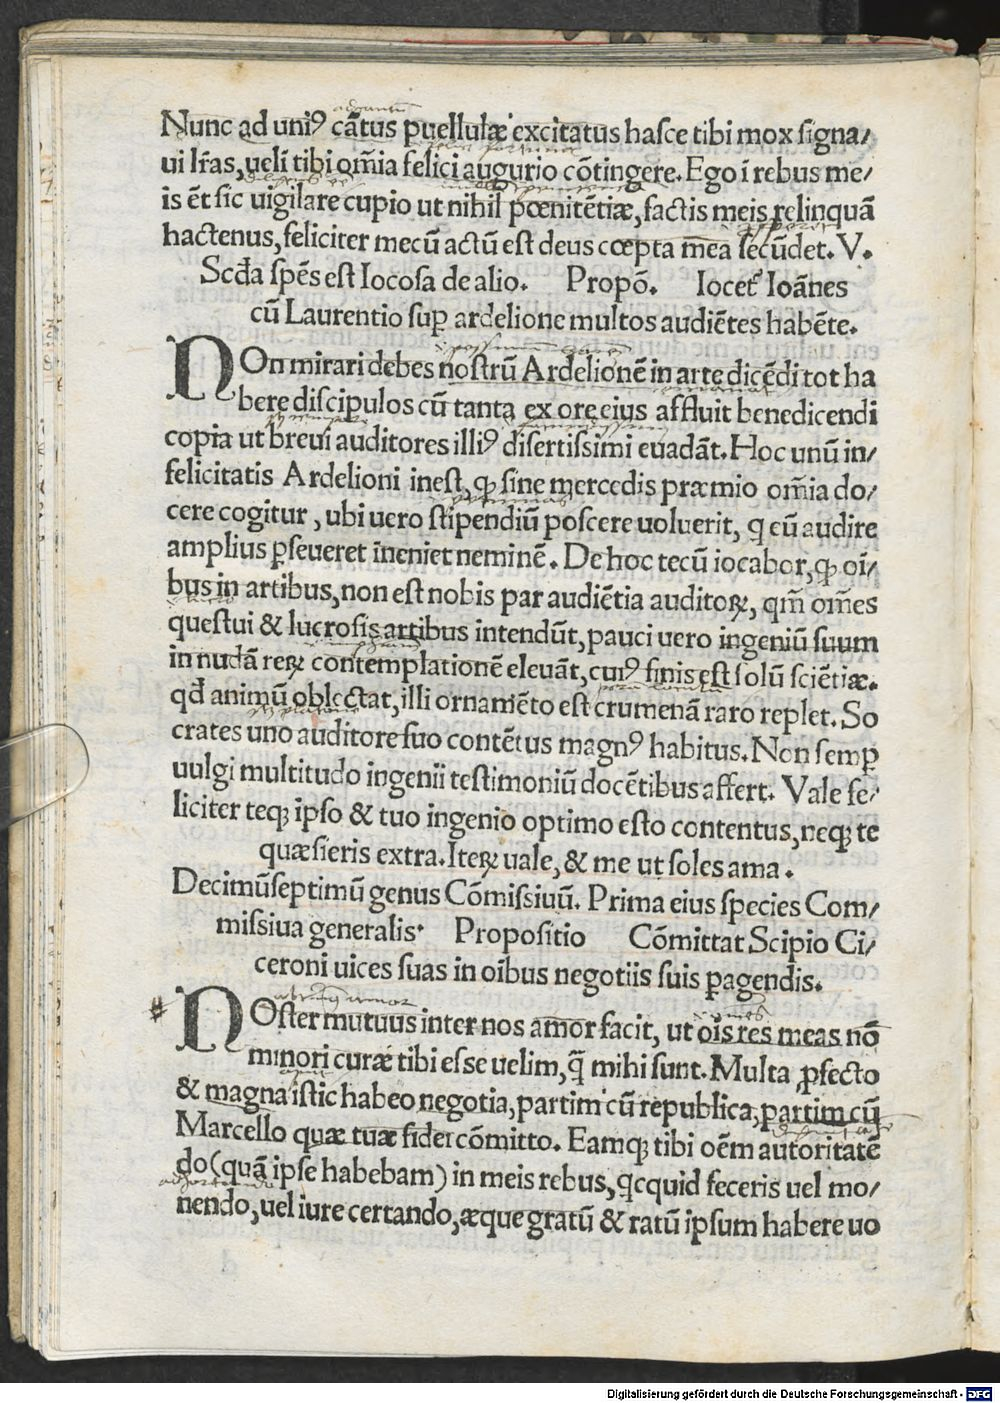 Nunc ad uniꝰ cãtus puellulæ excitatus hasce tibi mox signa/
ui lr̃as, uelĩ tibi om̃ia felici augurio cõtingere. Ego ĩ rebus me/
is ẽt sic uigilare cupio ut nihil pœnitẽtiæ, factis meis relinquã
hactenus, feliciter mecũ actũ est deus cœpta mea secũdet. V.
Scđa spẽs est Iocosa de alio. Propõ. Iocet᷑ Ioãnes
cũ Laurentio suꝑ ardelione multos audiẽtes habẽte.
NOn mirari debes nostrũ Ardelionẽ in arte dicẽdi tot ha
bere discipulos cũ tanta ex ore eius affluit benedicendi
copia ut breui auditores illiꝰ disertissimi euadãt. Hoc unũ in/
felicitatis Ardelioni inest, ꝙ sine mercedis præmio om̃ia do/
cere cogitur, ubi uero stipendiũ poscere uoluerit, q eũ audire
amplius ꝑseueret ineniet neminẽ. De hoc tecũ iocabor, ꝙ oĩ/
bus in artibus, non est nobis par audiẽtia auditoꝝ, qm̃ om̃es
questui & lucrosis artibus intendũt, pauci uero ingeniũ suum
in nudã reꝝ contemplationẽ eleuãt, cuiꝰ finis est solũ sciẽtiæ.
qđ animũ oblectat, illi ornamẽto est crumenã raro replet. So
crates uno auditore suo contẽtus magnꝰ habitus. Non semꝑ
uulgi multitudo ingenii testimoniũ docẽtibus affert. Vale fe/
liciter teqꝫ ipso & tuo ingenio optimo esto contentus, neqꝫ te
quæsieris extra. Iteꝝ uale, & me ut soles ama.
Decimũseptimũ genus Cõmissiuũ. Prima eius species Com/
missiua generalis. Propositio Cõmittat Scipio Ci/
ceroni uices suas in oĩbus negotiis suis ꝑagendis.
NOster mutuus inter nos amor facit, ut oĩs res meas nõ
minori curæ tibi esse uelim, q̃ mihi sunt. Multa ꝓfecto
& magna istic habeo negotia, partim cũ republica, partim cũ
Marcello quæ tuæ fidei cõmitto. Eamqꝫ tibi oẽm autoritatẽ
do (quã ipse habebam) in meis rebus, qcquid feceris uel mo/
nendo, uel iure certando, æque gratũ & ratũ ipsum habere uo
Digitalisierung gefördert durch die Deutsche Forschungsgemeinschaft - DFG